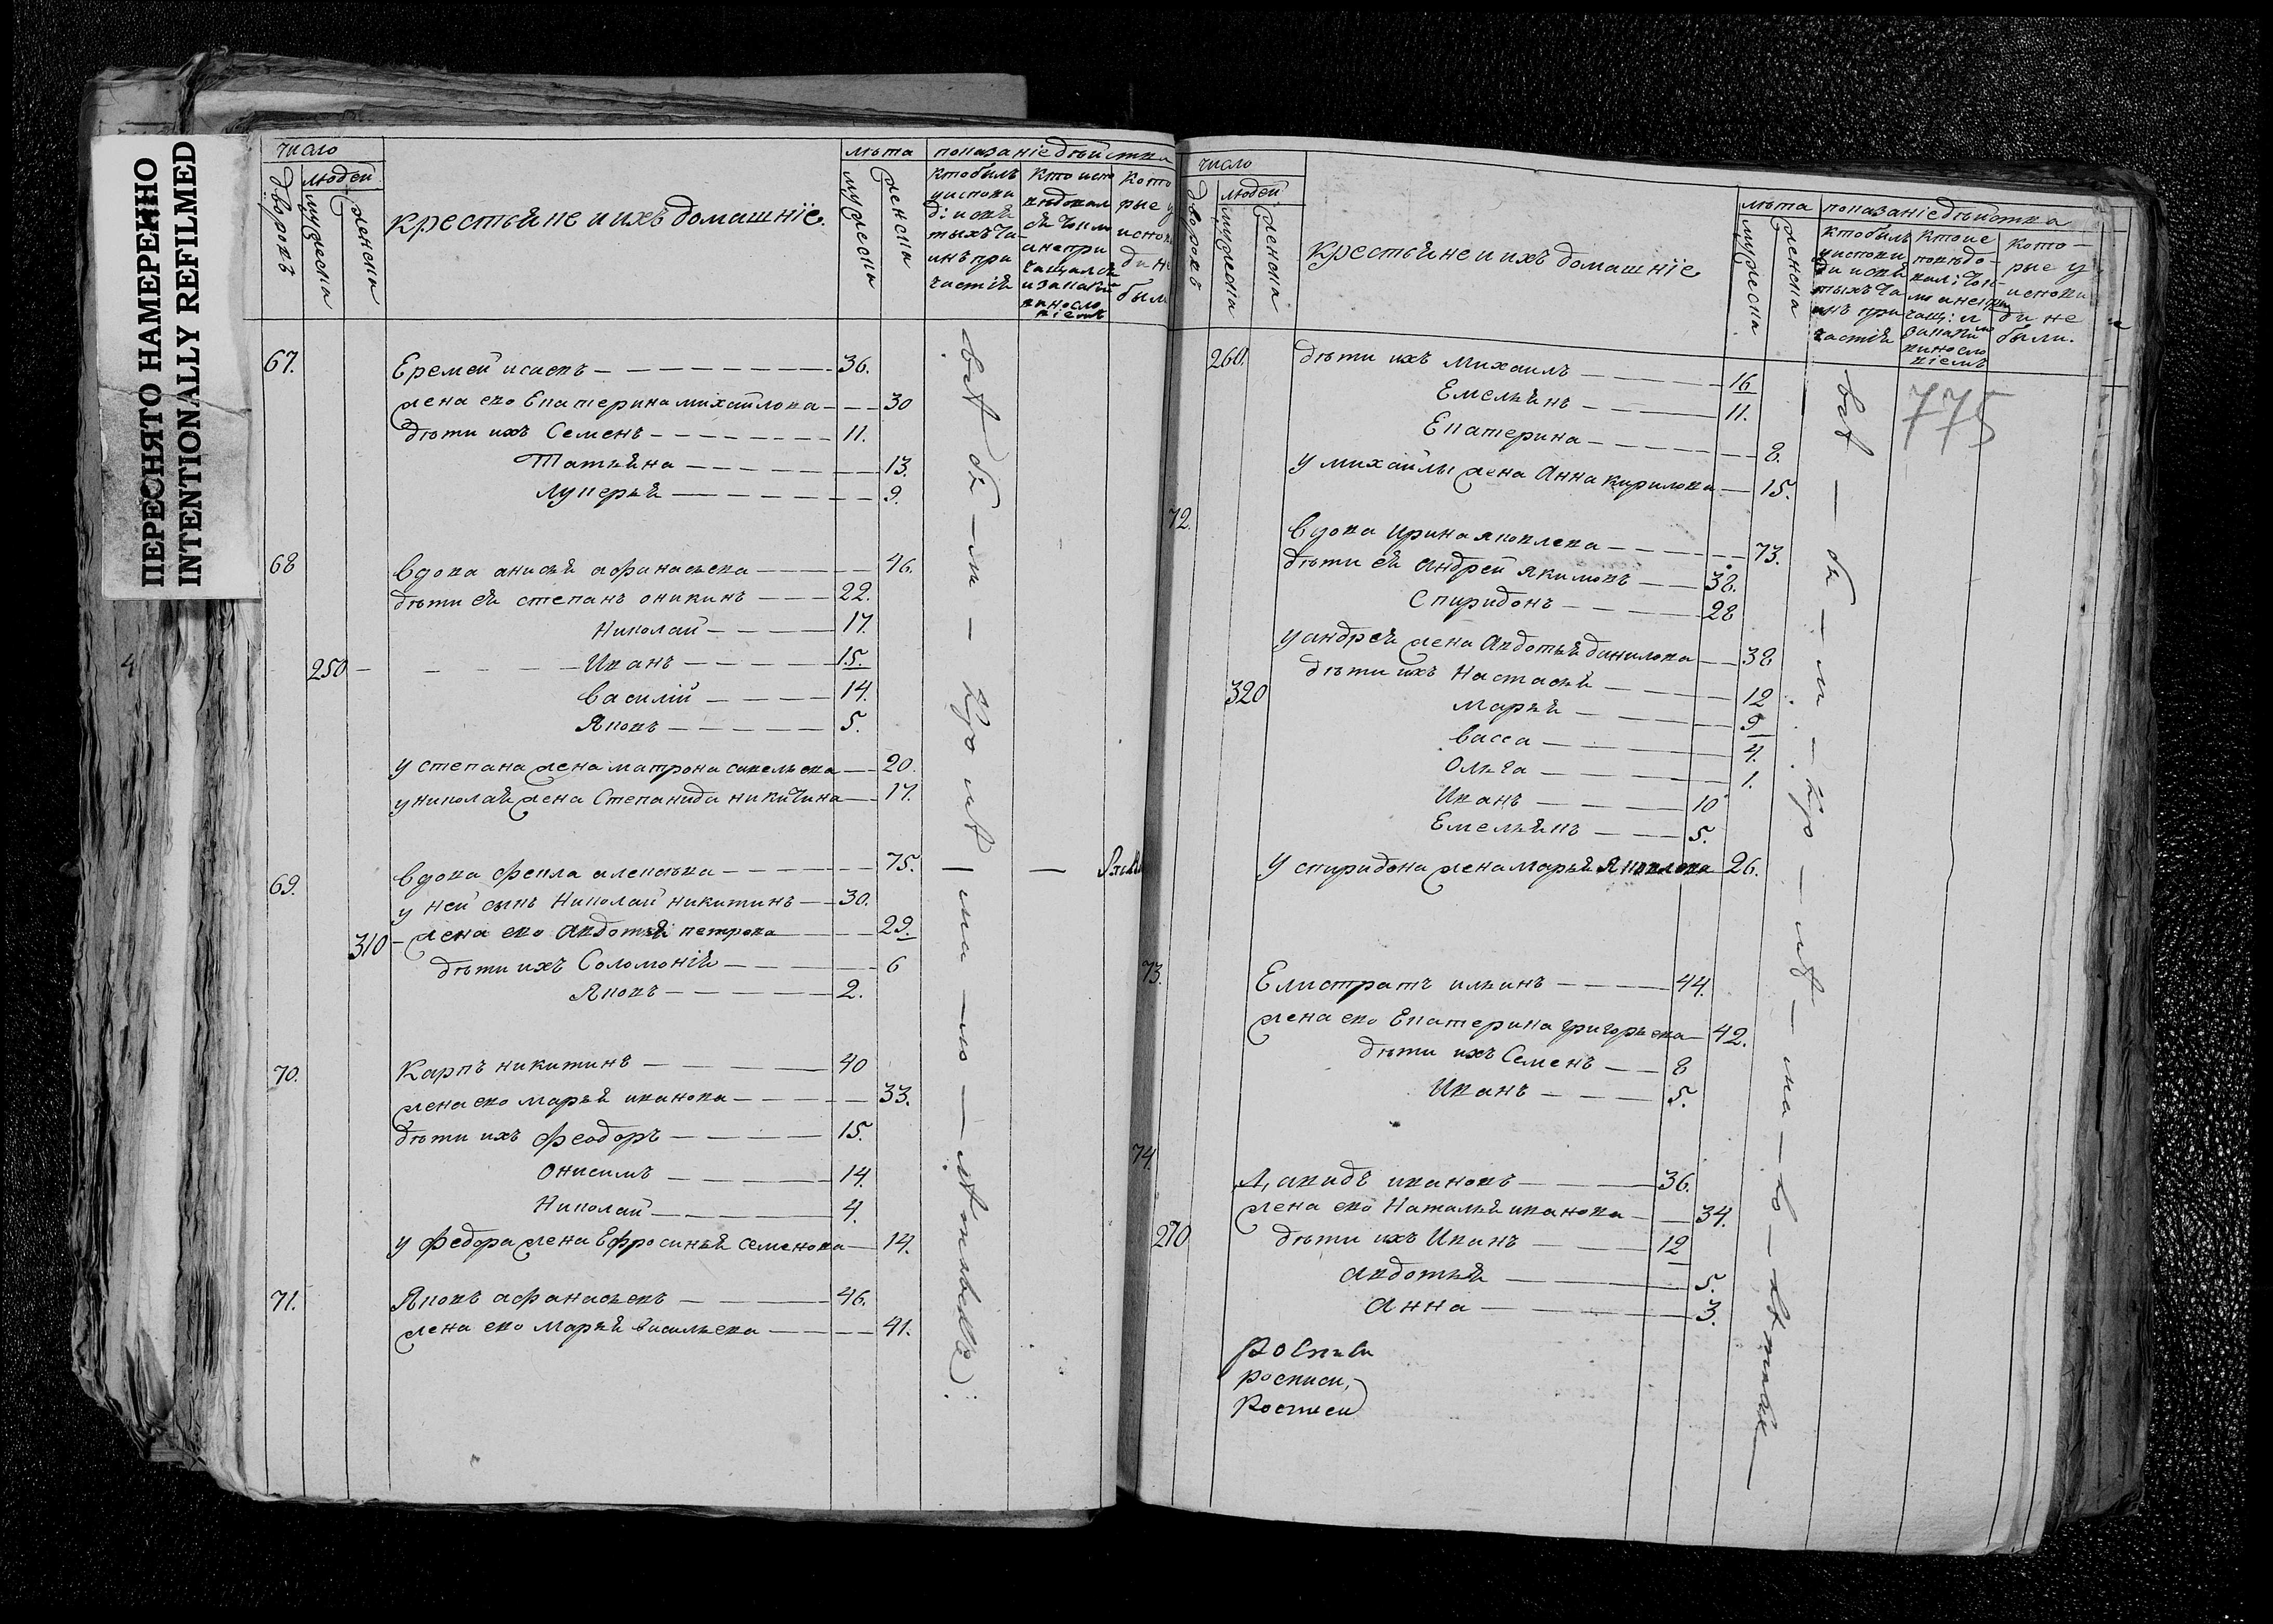 ПЕРЕСНЯТО НАМЕРЕННО
INTENTIONALLY REFILMED
число
людей
дворовъ
мужеска
женска
крестьяне и ихъ домашнїе.
лѣта
мужеска
женска
показанїе дѣйства
кто былъ
у испове
ди и свя
тыхъ та
инъ при
частія
кто испо
вѣдовал
ся токмо
а не при
чащался
и за какой
виносло
віемъ
кото
рые у
испов
ди не
были
67. Еремей исаевъ 36.
жена ево Екатерина михайлова 30
дѣти ихъ Семенъ 11.
Татьяна 13.
Лукерья 9.
68 вдова анисья афанасьева 46.
дѣти ея степанъ оникинъ 22.
Николай 17.
250 Иванъ 15.
Василій 14.
Яковъ 5.
у степана жена матрона савельева 20.
у николая жена Степанида никитина 17.
69. вдова фекла алексѣева 75.
у ней сынъ Николай никитинъ 30.
310 жена ево авдотья петрова 29.
дѣти ихъ Соломонія 6
Яковъ 2.
70. Карпъ никитинъ 40
жена ево марья иванова 33.
дѣти ихъ феодоръ 15.
Онисимъ 14.
Николай 4.
у федора жена Ефросинья семенова 14.
71. Яковъ афанасьевъ 46.
жена ево марья васильева 41.
число
людей
дворовъ
мужеска
женска
крестьяне и ихъ домашнїе
лѣта
мужеска
женска
показанїе дѣйства
кто былъ
у испове
ди и свя
тыхъ та
инъ при
частія
кото
рые у
испове
ди не
были.
775
260. дѣти ихъ михаилъ 16
Емельянъ 11.
Екатерина 8.
у михаилы жена Анна кирилова 15.
72. вдова ирина яковлева 73.
дѣти ея андрей якимовъ 38.
Спиридонъ 28
у андрея жена Авдотья данилова 38
320 дѣти ихъ Настасья 12
марья 9
васса 4.
Ольга 1.
Иванъ 10
Емельянъ 5.
у спиридона жена марья Яковлева 26.
73. Елистратъ ильинъ 44.
жена ево Екатерина григорьева 42.
дѣти ихъ Семенъ 8
Иванъ 5.
74. Давидъ ивановъ 36.
жена ево Наталья иванова 34.
270 дѣти ихъ Иванъ 12
авдотья 5.
анна 3.
росписи,
Росписи